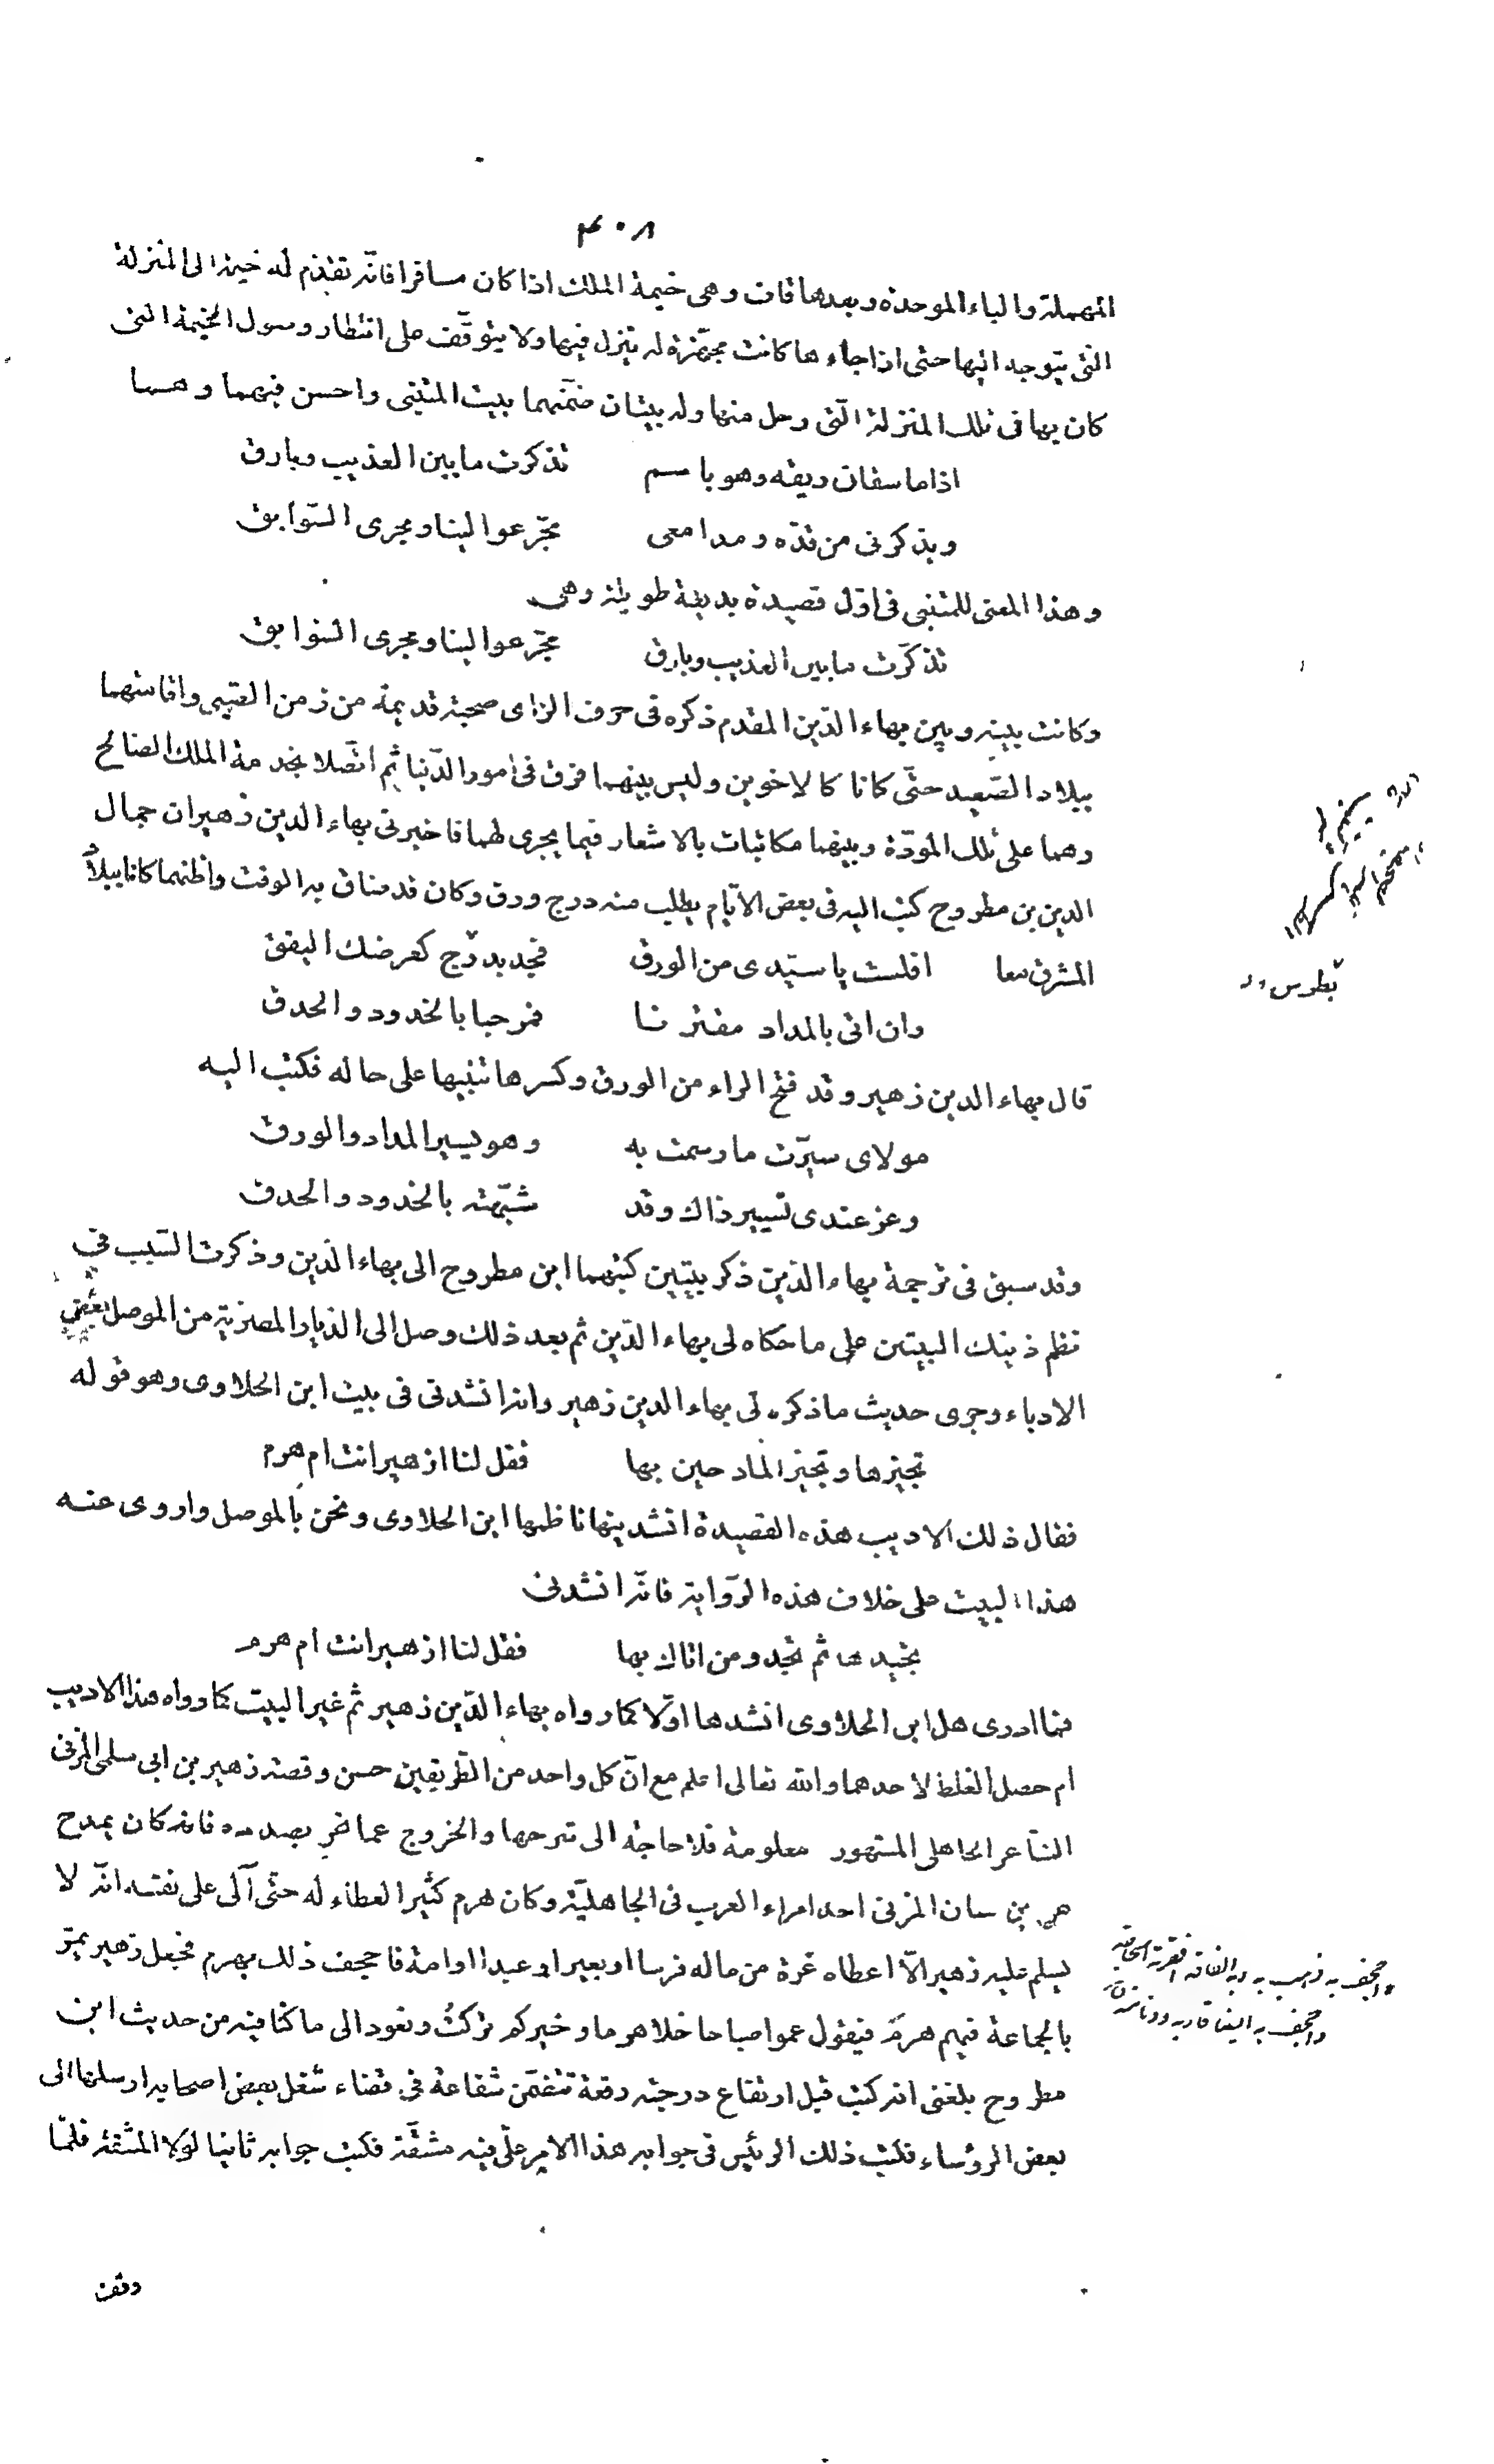 ٤٠٨
المهملة والباء الموحدة وبعدها قاف وهى خيمة الملك اذا كان مسافرا فانّه تقدّم له خيمة الى المنزلة
التى يتوجه اليها حتى اذا جاءها كانت مجهّزة له ينزل فيها ولا يتوقّف على انتظار وصول الخيمة التى
كان بها فى تلك المنزلة الّتى رحل منها وله بيتان ضمّنهما بيت المتنبى واحسن فيهما وهما
اذا ما سقانى ريقه وهو باسم تذكرت ما بين العذيب وبارق
ويذكرنى من قدّه ومدامعى مجّر عوالينا ومجرى السّوابق
وهذا المعنى للمتنبى فى اوّل قصيدة بديعة طويلة وهى
تذكّرت ما بين العذيب وبارق مجّر عوالينا ومجرى السّوابق
وكانت بينه وبين بهاء الدّين المقدم ذكره فى حرف الزاى صحبة قديمة من زمن الصّبى واقامتهما
ببلاد الصّعيد حتّى كانا كالاخوين وليس بينهما فرق فى امور الدّنيا ثم اتّصلا بخدمة الملك الصالح
وهما على تلك المودّة وبينهما مكاتبات بالاشعار فيما يجرى لهما فاخبرنى بهاء الدين زهير ان جمال
الدين بن مطروح كتب اليه فى بعض الايّام يطلب منه درج ورق وكان قد ضاق به الوقت واظنهما كانا ببلاد
المشرق معا افلست يا سيّدى من الورق فجد بدرّج كعرضك اليقق
وان اتى بالمداد مقترنا فمرحبا بالخدود والحدق
قال بهاء الدين زهير وقد فتح الراء من الورق وكسرها تنبيها على حاله فكتب اليه
مولاى سيّرت ما رسمت به وهو يسير المداد والورق
وعز عندى تسيير ذاك وقد شبّهته بالخدود والحدق
وقد سبق فى ترجمة بهاء الدّين ذكر بيتين كتبهما ابن مطروح الى بهاء الدّين وذكرت السّبب فى
نظم ذينك البيتين على ما حكاه لى بهاء الدّين ثم بعد ذلك وصل الى الديار المصرية من الموصل بعض
الادباء وجرى حديث ما ذكره لى بهاء الدين زهير وانه انشدنى فى بيت ابن الحلاوى وهو قوله
تجيزها وتجيز المادحين بها فقل لنا ازهير انت ام هرم
فقال ذلك الاديب هذه القصيدة انشدنيها ناظمها ابن الحلاوى ونحن بالموصل واروى عنه
هذا البيت على خلاف هذه الرّواية فانّه انشدنى
تجيدها ثم تجدو من اتاك بها فقل لنا ازهير انت ام هرم
فما ادرى هل ابن الحلاوى انشدها اوّلا كما رواه بهاء الدّين زهير ثم غير البيت كما رواه هذا الاديب
ام حصل الغلط لاحدهما والله تعالى اعلم مع انّ كل واحد من الطّريقين حسن وقصة زهير بن ابى سلمى المزنى
الشاعر الجاهلى المشهور معلومة فلا حاجة الى شرحها والخروج عما نحن بصدده فانه كان يمدح
هرم بن سنان المزنى احد امراء العرب فى الجاهليّة وكان هرم كثير العطاء له حتّى آلى على نفسه انّه لا
يسلم عليه زهير الّا اعطاه غرة من ماله فرسا او بعيرا او عبدا او امة فاجحف ذلك بهرم فجعل زهير يمرّ
بالجماعة فيهم هرمٌ فيقول عموا صباحا خلا هرما وخيركم تركتُ ونعود الى ما كنّا فيه من حديث ابن
مطروح بلغنى انه كتب قبل ارتفاع درجته رقعة تتضمّن شفاعة فى قضاء شغل بعض اصحابه ارسلها الى
بعض الرؤساء فكتب ذلك الرئيس فى جوابه هذا الامر علّى فيه مشقّة فكتب جوابه ثانيا لولا المشقّة فلمّا
وقف